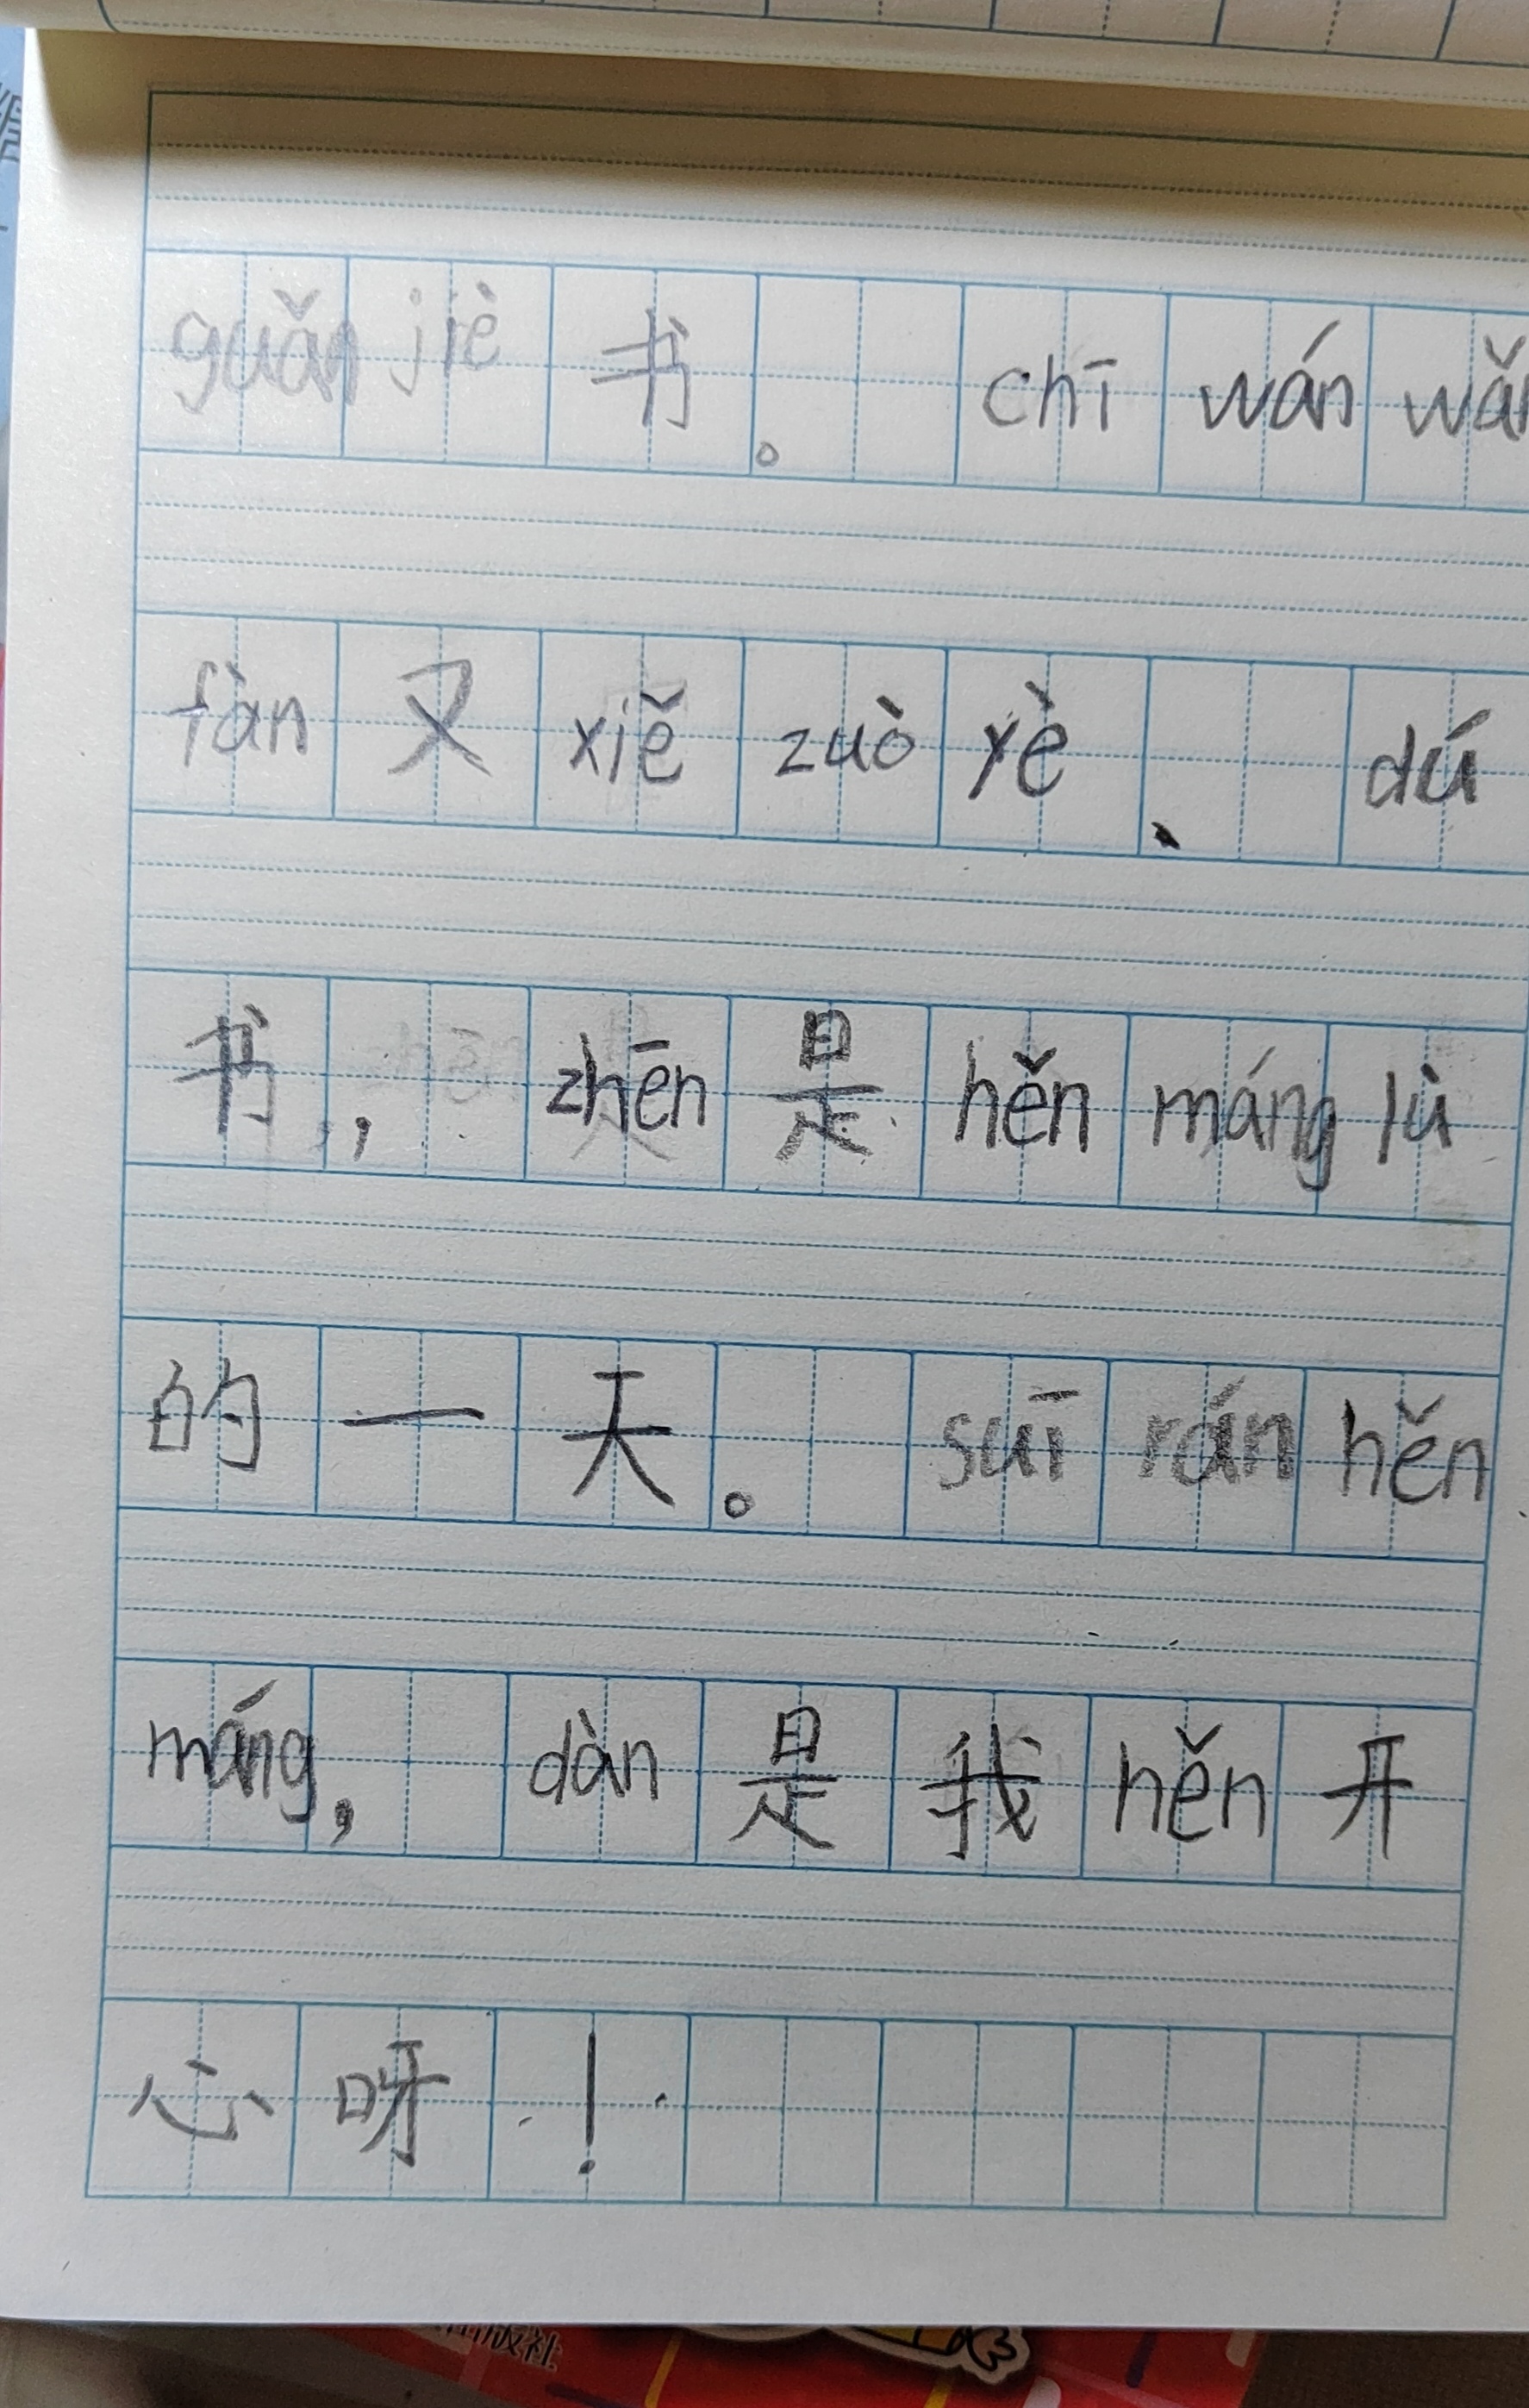 guǎn jiè 书。 chī wán wǎn
fàn 又 xiě zuò yè、 dú
书, zhēn 是 hěn máng lù
的一天。 suī rán hěn
máng, dàn 是我 hěn 开
心呀!
出版社